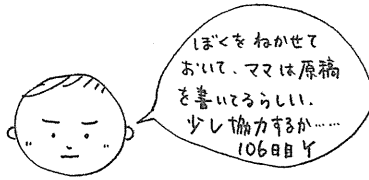 ぼくをねかせて
おいて、ママは原稿
を書いてるらしい．
少し協力するか……
106日目 Y